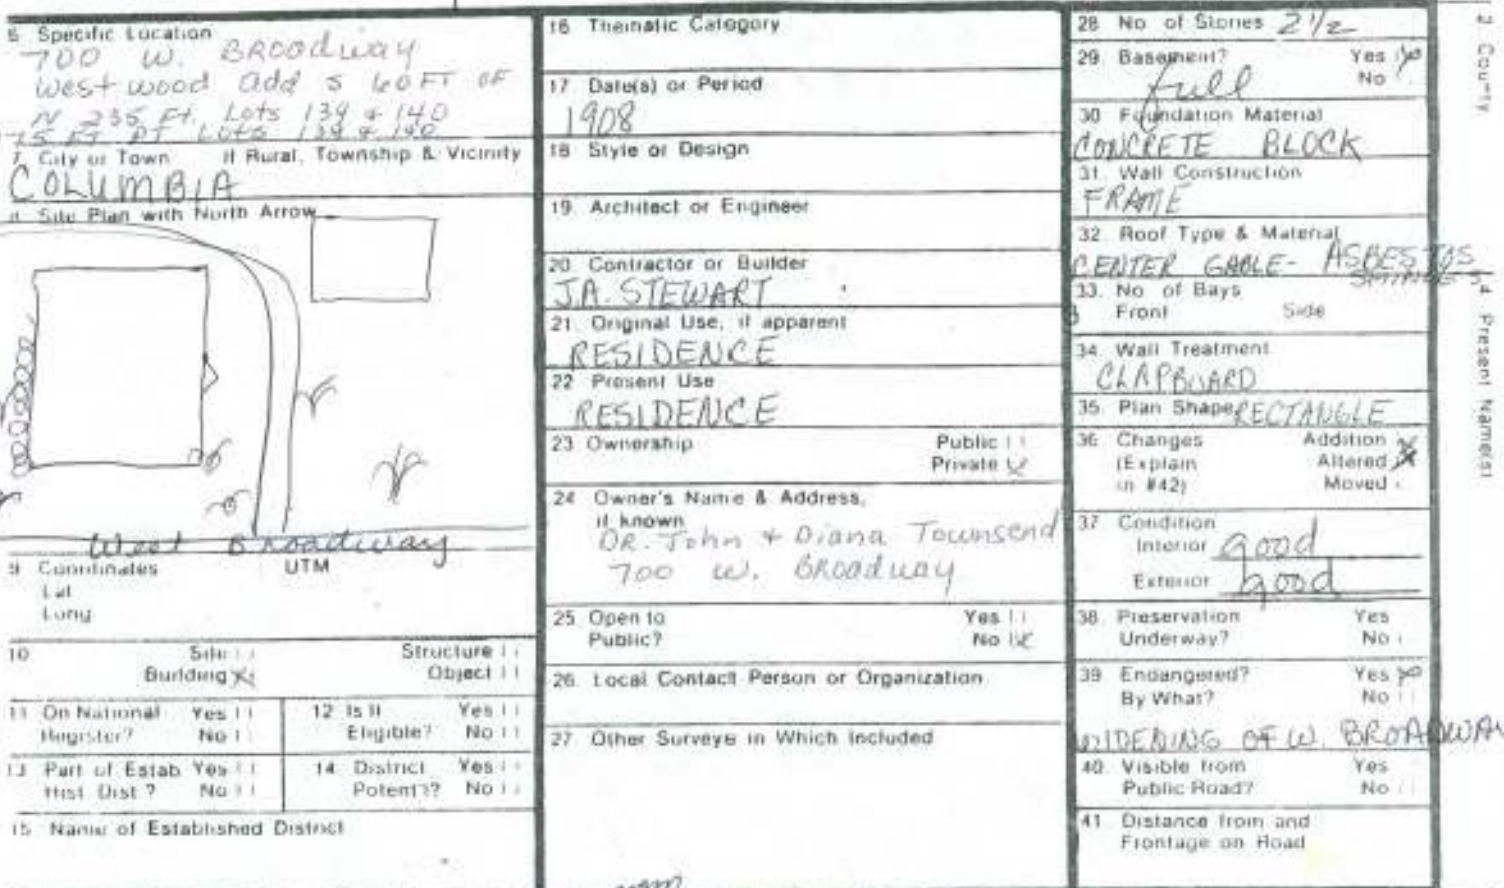 6 Specific Location
700 W. BROADWAY
Westwood add S 60 FT OF
N 235 Ft. Lots 139 + 140
75 FT PT LOTS 139 + 140
7 City or Town If Rural, Township & Vicinity
COLUMBIA
8 Site Plan with North Arrow
West Broadway
9 Coordinates UTM
Lat
Long
10 Site Structure
Building X Object
11 On National Register? Yes No
12 Is It Eligible? Yes No
13 Part of Estab Hist Dist? Yes No
14 District Potent'l? Yes No
15 Name of Established District
16 Thematic Category
17 Date(s) or Period
1908
18 Style or Design
19. Architect or Engineer
20. Contractor or Builder
J.A. STEWART
21. Original Use, if apparent
RESIDENCE
22 Present Use
RESIDENCE
23 Ownership Public
Private
24 Owner's Name & Address,
if known
DR. John + Diana Townsend
700 W. BROADWAY
25 Open to Yes
Public? No
26. Local Contact Person or Organization
27. Other Surveys in Which Included
28 No of Stories 2 1/2
29 Basement? Yes
full No
30 Foundation Material
CONCRETE BLOCK
31. Wall Construction
FRAME
32. Roof Type & Material
CENTER GABLE - ASBESTOS
SHINGLES
33. No of Bays
3 Front Side
34 Wall Treatment
CLAPBOARD
35 Plan Shape RECTANGLE
36 Changes Addition
(Explain Altered
in #42) Moved
37 Condition
Interior good
Exterior good
38 Preservation Yes
Underway? No
39 Endangered? Yes
By What? No
WIDENING OF W. BROADWAY
40. Visible from Yes
Public Road? No
41 Distance from and
Frontage on Road
2 County
4 Present Name(s)